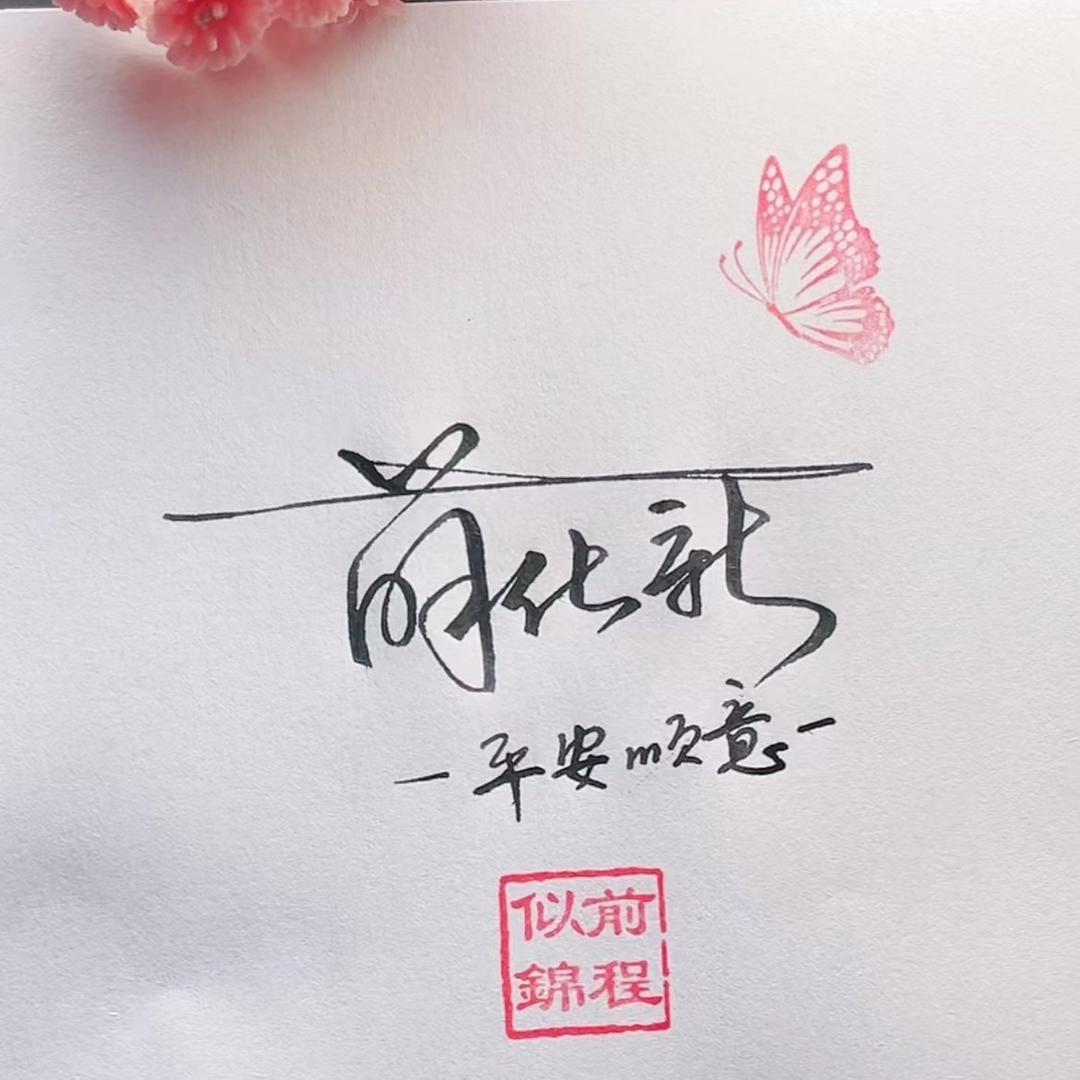 薛化新
平安顺意
前程
似錦